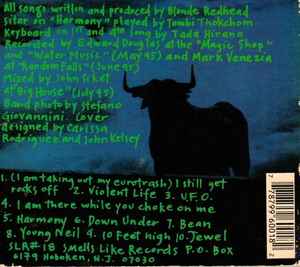 All songs written and produced by Blonde Redhead
sitar on "Harmony" played by Tombi Thokchom
Keyboard on 1st and 4th song by Tada Hirano
Recorded by Edward Douglas at the "Magic Shop"
and "Water Music" (May 95) and Mark Venezia
at "Random Falls" (June 95)
Mixed by John Siket
at Big House" (July 95)
Band photo by Stefano
Giovannini. Cover
designed by Carissa
Rodriguez and John Kelsey
1. (I am taking out my eurotrash) I still get
rocks off 2. Violent Life 3. U.F.O.
4. I am there while you choke on me
5. Harmony 6. Down Under 7. Bean
8. Young Neil 9. 10 Feet high 10. Jewel
SLR#18 Smells Like Records P.O. Box
6179 Hoboken, N.J. 07030
7 87996 00182